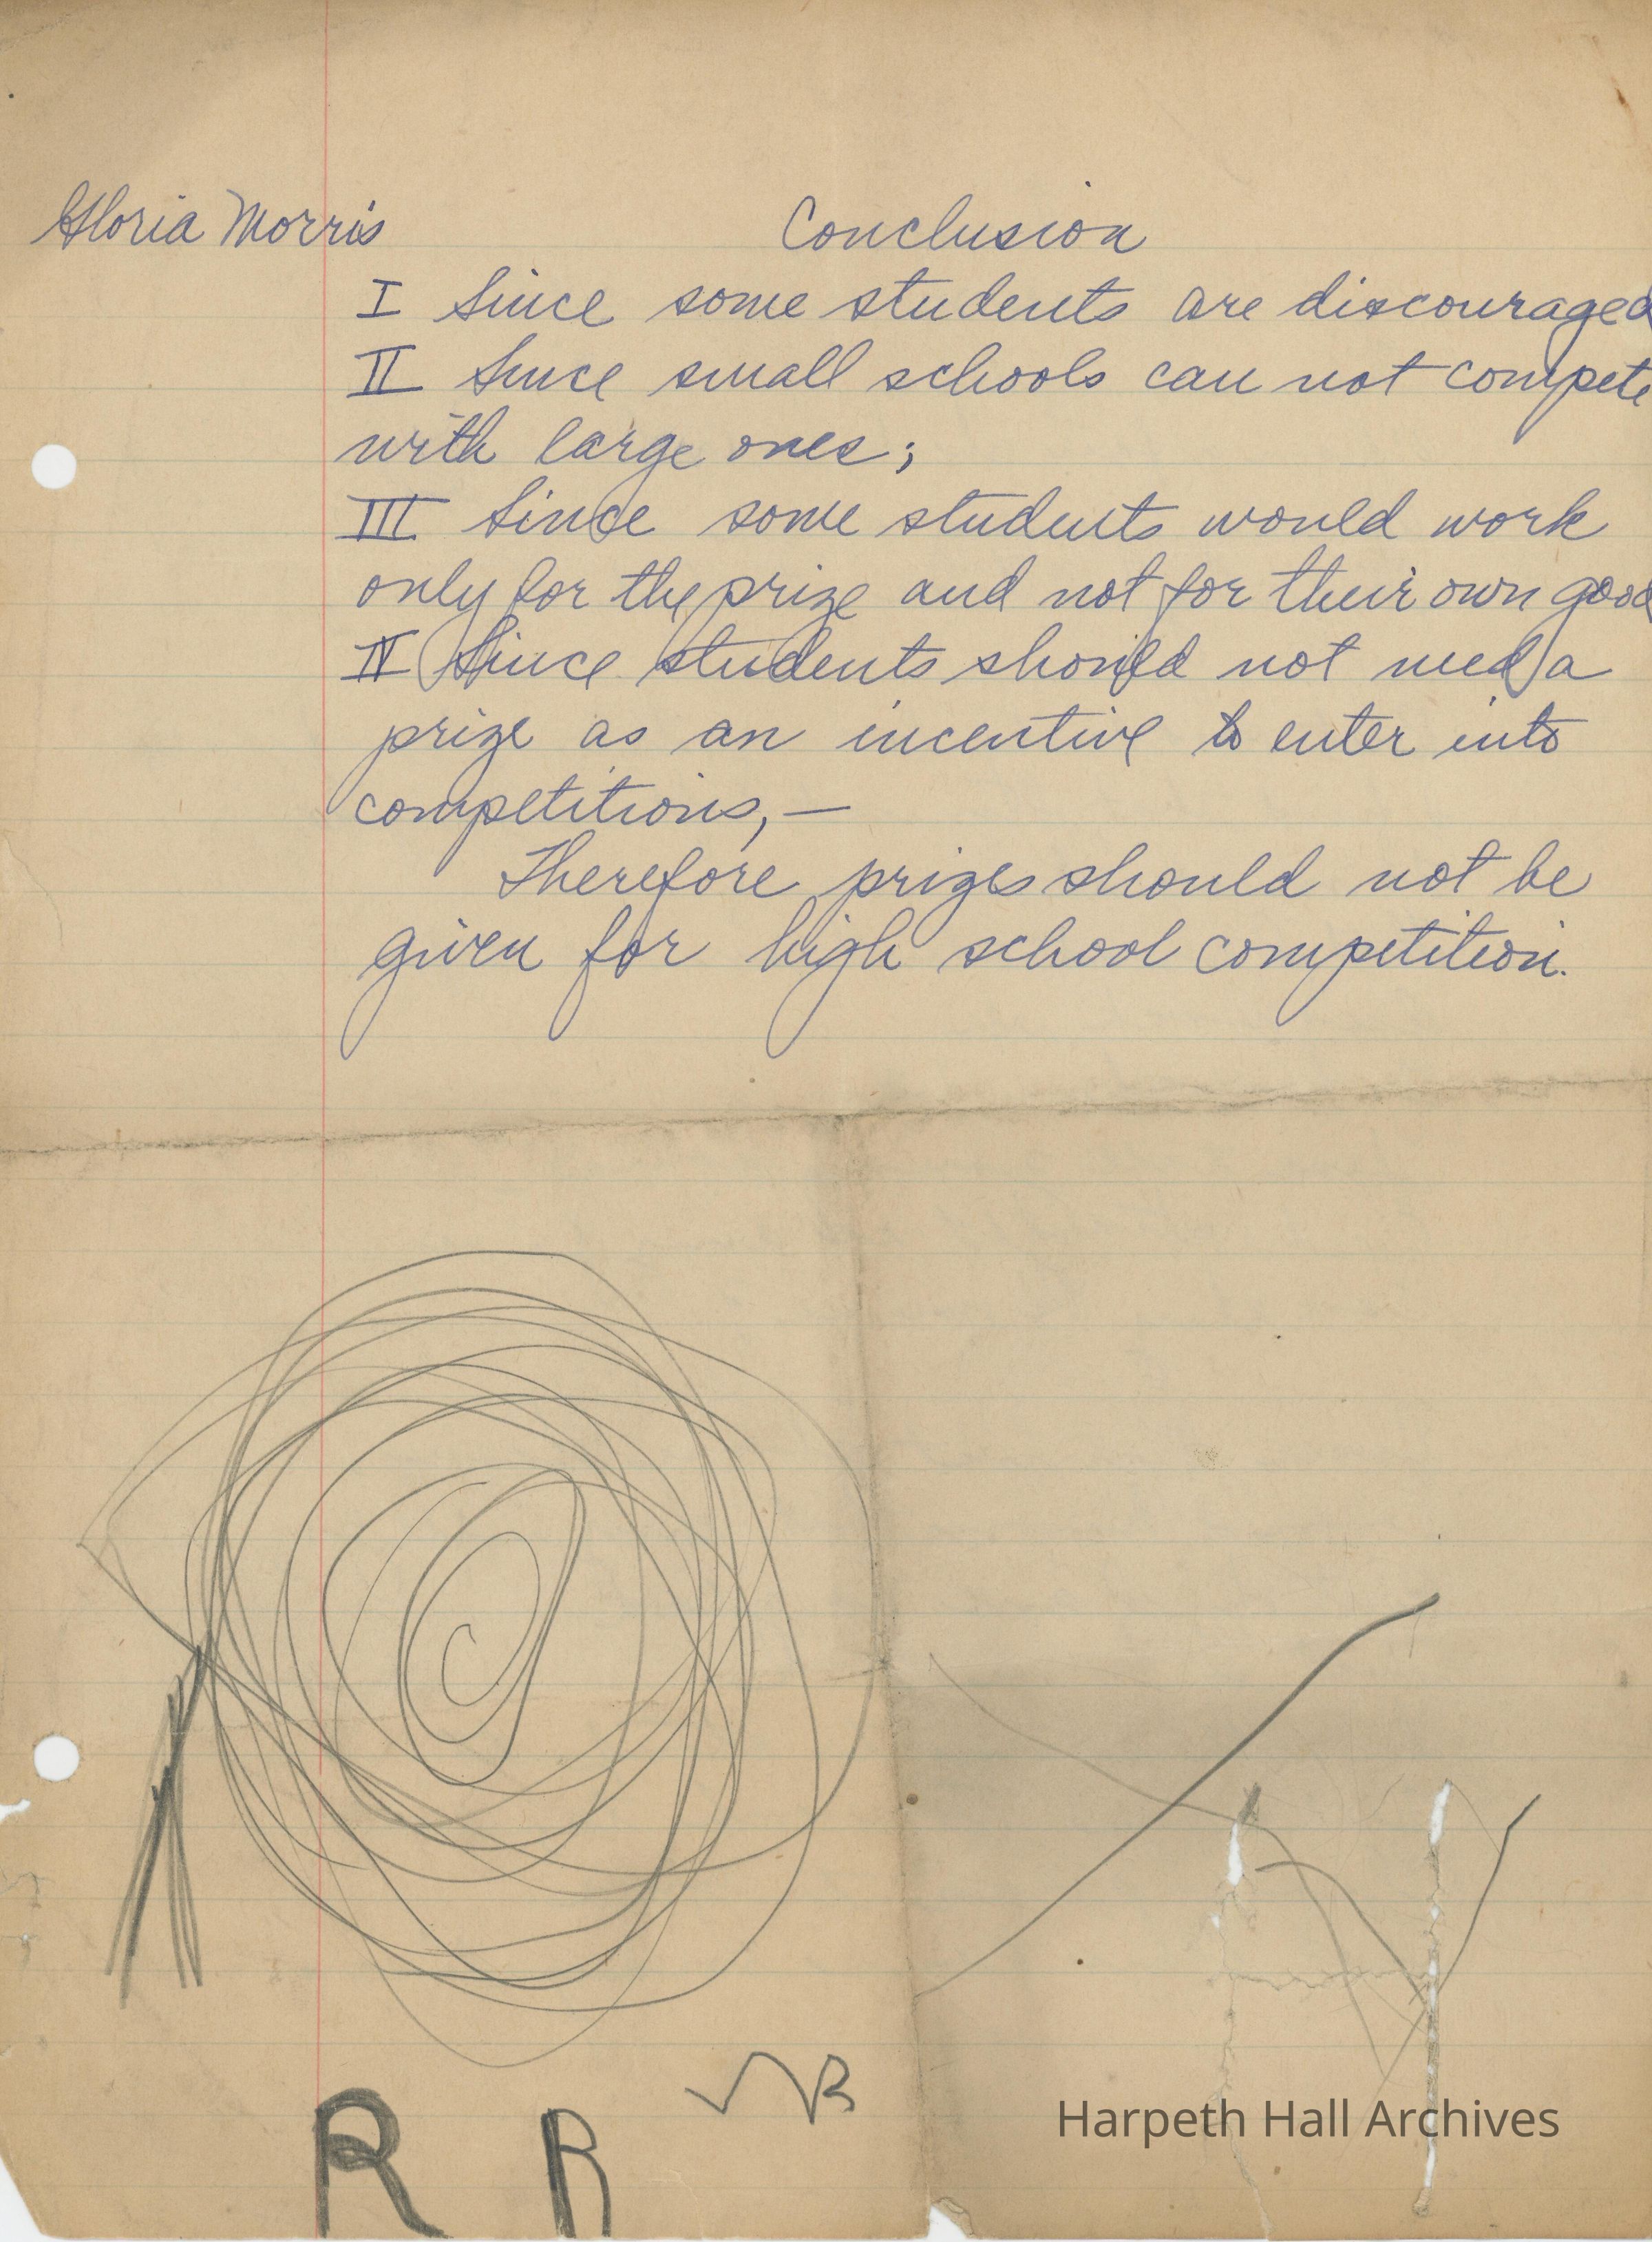 Gloria Morris Conclusion
I Since some students are discouraged
II Since small schools can not compete
with large ones;
III Since some students would work
only for the prize and not for their own good
IV Since students should not need a
prize as an incentive to enter into
competitions, —
Therefore prizes should not be
given for high school competition.
R R
Harpeth Hall Archives